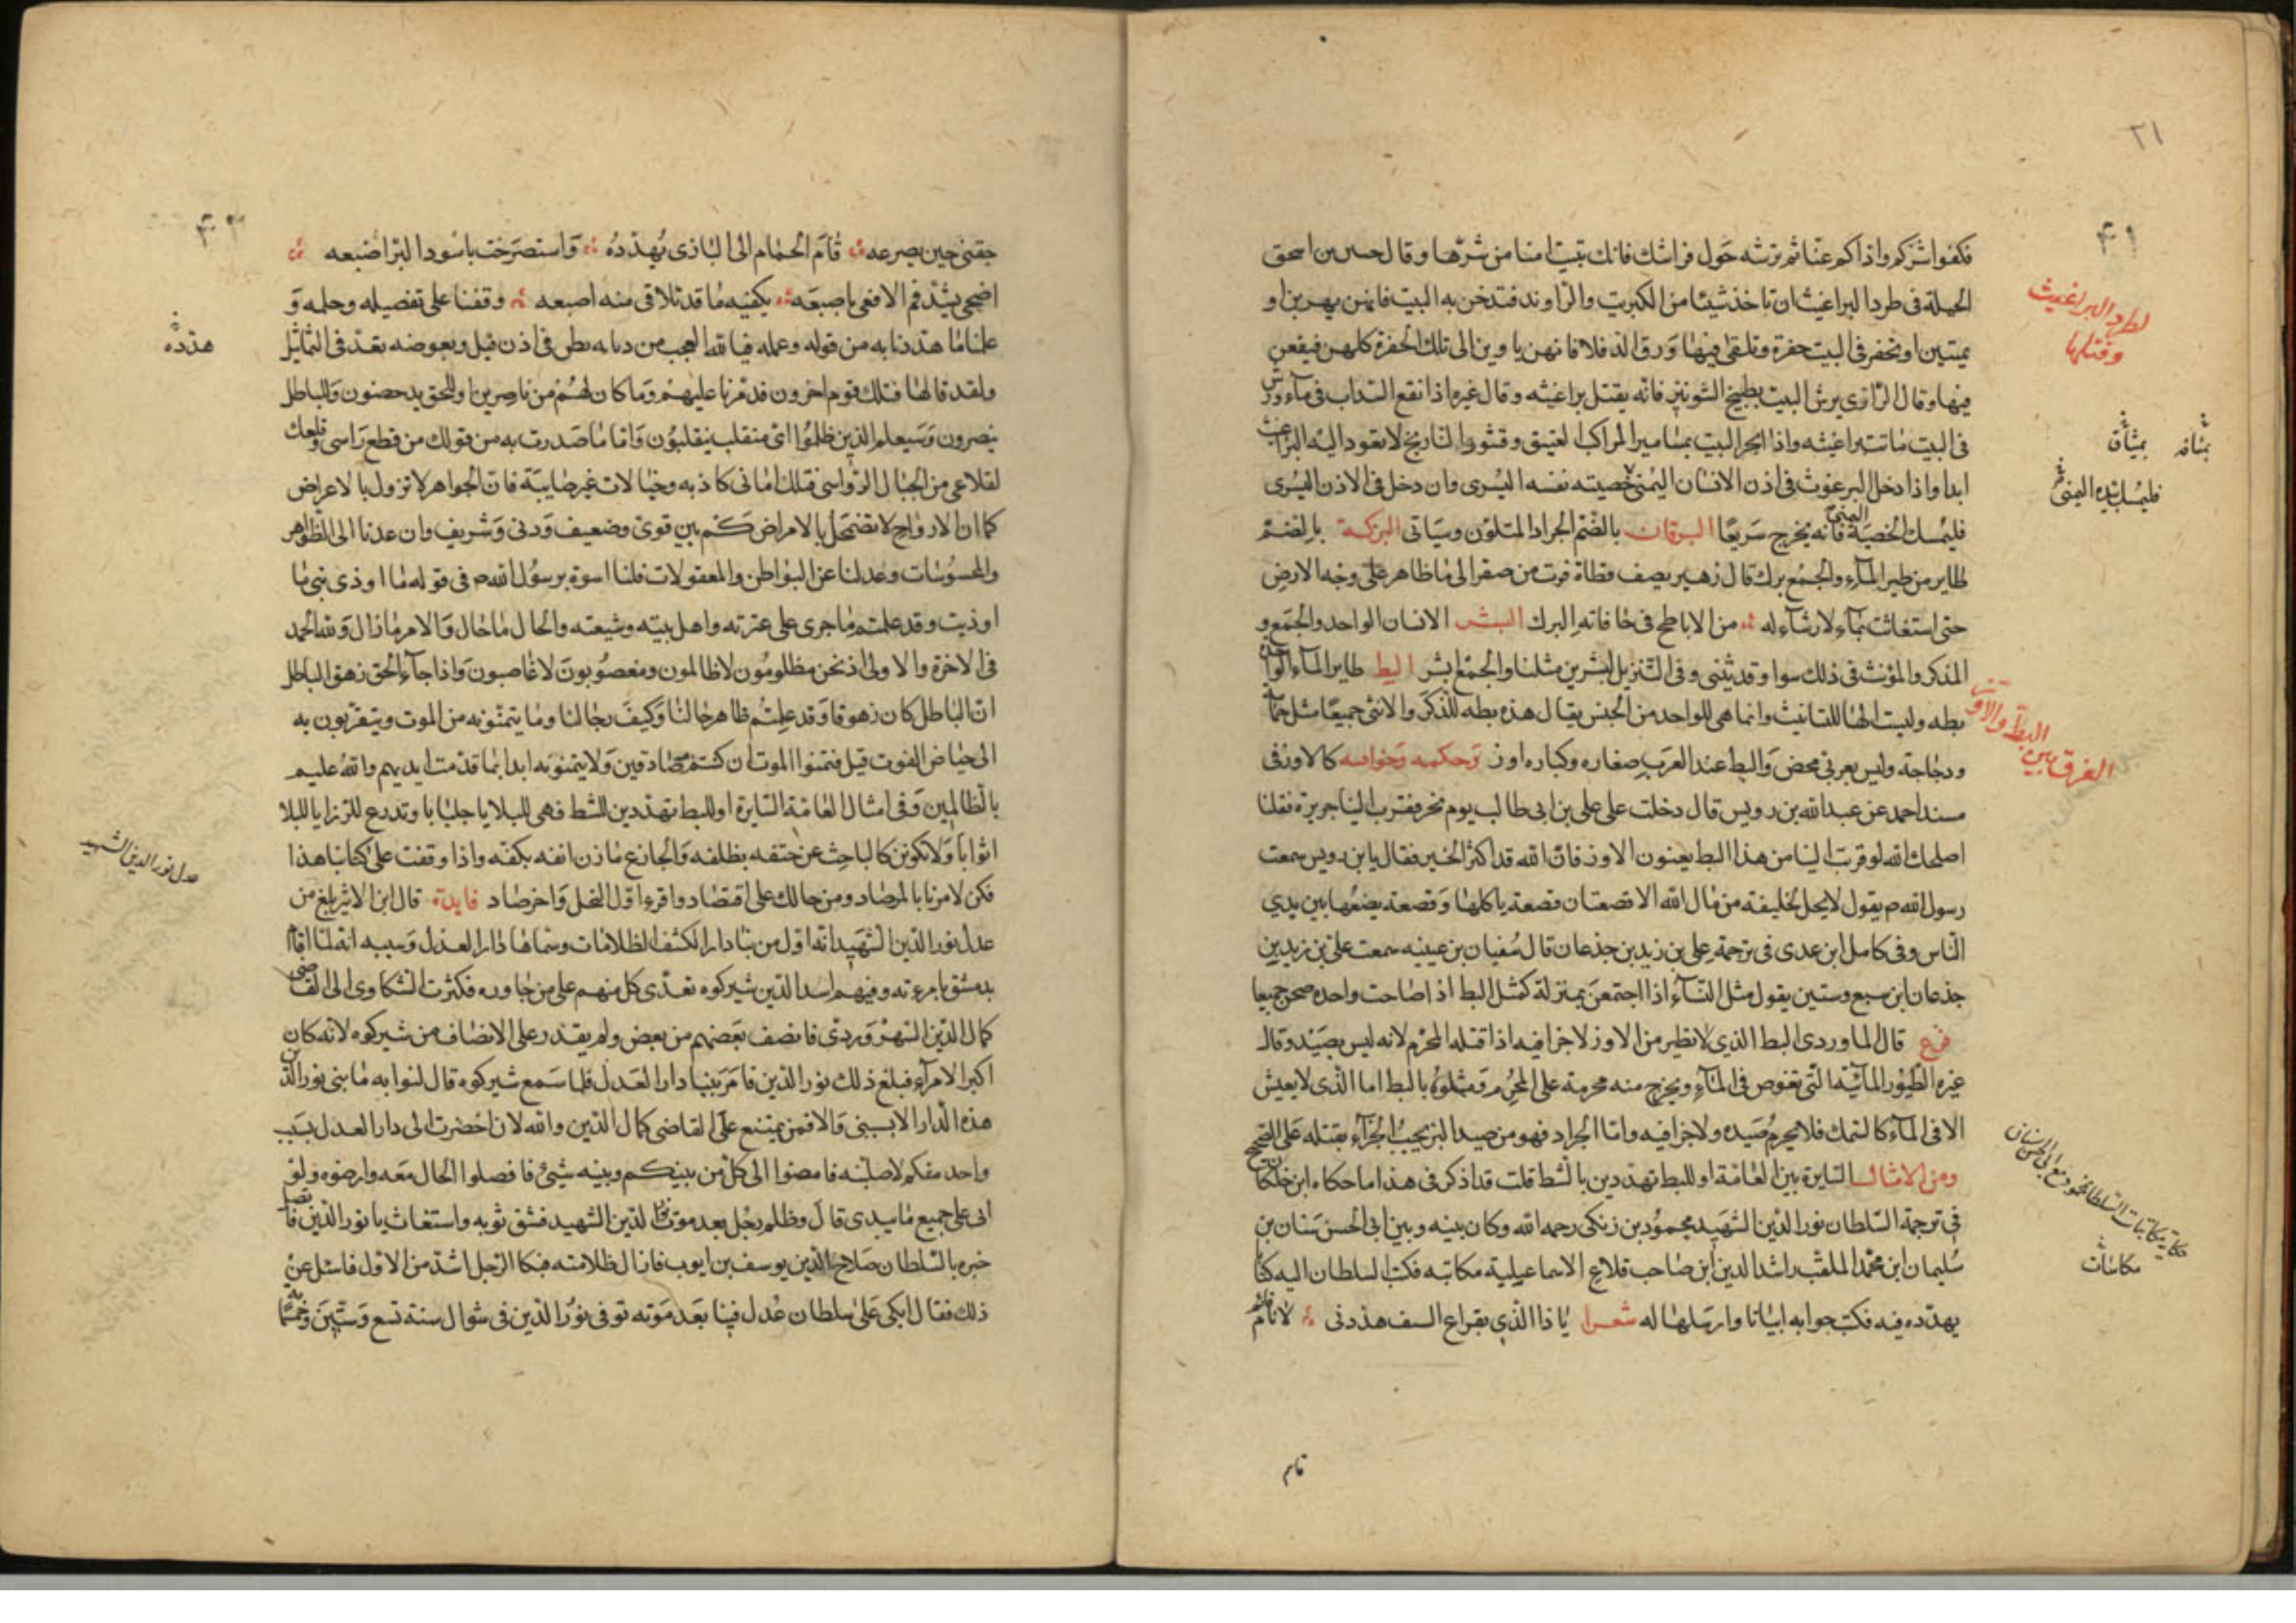 ٢١
٤١
فكفوا شركم واذاكم عنا ثم ترشه حول فراشك فانك تبيت امنا من شرها وقال حسين بن اسحق
الحيلة فى طرد البراغيث ان تاخذ شيئا من الكبريت والراوند فتدخن به البيت فانهن يهربن او
يمتن او تحفر فى البيت حفرة وتلقى فيها ورق الدفلا فانهن ياوين الى تلك الحفرة كلهن فيقعن
فيها وقال الرازى يرش البيت بطبيخ الشونيز فانه يقتل براغيثه وقال غيره اذا نقع السداب فى ماء ورش
فى البيت ماتت براغيثه واذا بخر البيت بمشاميرا لمراكب العتيق وقشور النارنج لا تعود اليه البراغيث
ابدا واذا دخل البرغوث فى اذن الانسان اليمنى خصيته نفسه اليسرى وان دخل فى الاذن اليسرى
فليمسك الخصية اليمنى فانه يخرج سريعا البرقان بالضم الجراد المتلون وسياتى البركة بالضم
طاير من طير الماء والجمع برك قال زهير يصف قطاة فرت من صقر الى ماء ظاهر على وجه الارض
حتى استغاثت بماء لا رشاء له من الاباطح فى حافاته البرك البشر الانسان الواحد والجمع و
المذكر والمؤنث فى ذلك سوا وقد يثنى وفى التنزيل لبشرين مثلنا والجمع ابشر البط طاير الماء الواحدة
بطه وليست الها للتانيث وانما هى للواحد من الجنس يقال هذه بطه للذكر والانثى جميعا مثل حمامة
ودجاجة وليس بعربى محض والبط عند العرب صغاره وكباره اوز وحكمه وخواصه كالاوز فى
مسند احمد عن عبد الله بن رويس قال دخلت على على بن ابى طالب يوم نحر فقرب الينا جريرة فقلنا
اصلحك الله لو قربت الينا من هذا البط يعنون الاوز فان الله قد اكثر الخير فقال يابن رويس سمعت
رسول الله ص يقول لا يحل لخليفة من مال الله الا قصعتان قصعة ياكلها وقصعة يضعها بين يدى
الناس وفى كامل ابن عدى فى ترجمة على بن زيد بن جذعان قال سفيان بن عيينه سمعت على بن زيد بن
جذعان ابن سبع وستين يقول مثل النساء اذا اجتمعن بمنزلة كمثل البط اذ اصاحت واحده صحن جميعا
فرع قال الماوردى البط الذى لا تطير من الاوز لا جزا فيه اذا قتله المحرم لانه ليس بصيد وقال
غيره الطيور المائية التى تغوص فى الماء ويخرج منه محرمة على المحرم ومثلوه بالبط اما الذى لا يعيش
الا فى الماء كالسمك فلا يحرم صيده ولا جزا فيه واما الجراد فهو من صيد البر يجب الجزاء بقتله على الصحيح
ومن الامثال السايرة بين العامة او للبط تهددين بالشط قلت قد اذكرنى هذا ما حكاه ابن خلكان
فى ترجمة السلطان نور الدين الشهيد محمود بن زنكى رحمه الله وكان بينه وبين ابى الحسن سنان بن
سليمان ابن محمد الملقب راشد الدين ابن صاحب قلاع الاسماعيلية مكاتبه فكتب السلطان اليه كتابا
يهدده فيه فكتب جوابه ابياتا وارسلها له شعرا ياذا الذى بقراع السف هددنى لا قام
قام
لطرد البراغيث
وقتلها
بمثانه بمثاق
فليمسك بيده اليمنى
الفرق بين البط والاوز
حكاية مكاتبات السلطان محمود مع ابى الحسن سنان
مكاتبات
٤٢
جفنى حين يصرعه قام الحمام الى البازى يهدده واستصرخت باسود البر اضبعه
اضحى يشد فم الافعى باصبعه يكفيه ما قد تلاقى منه اصبعه وقفنا على تفصيله وجمله و
علمنا ما هددنا به من قوله وعمله فيا لله العجب من ذبابه يطن فى اذن فيل وبعوضه تعد فى التماثيل
ولقد قالها قبلك قوم اخرون فدمرنا عليهم وما كان لهم من ناصرين او للحق يدحضون وللباطل
ينصرون وسيعلم الذين ظلموا اى منقلب ينقلبون واما ما صدرت به من قولك من قطع راسى وقلعك
لقلاعى من الجبال الرواسى فتلك امانى كاذبه وخيالات غير صايبة فان الجواهر لا تزول بالاعراض
كما ان الارواح لا تضمحل بالامراض كم بين قوى وضعيف ودنى وشريف وان عدنا الى الظواهر
والمحسوسات وعدلنا عن البواطن والمعقولات فلنا اسوة برسول الله ص فى قوله ما اوذى نبى ما
اوذيت وقد علمتم ما جرى على عترته واهل بيته وشيعته والحال ما حال والامر ما زال ولله الحمد
فى الاخرة والاولى اذ نحن مظلومون لا ظالمون ومغصوبون لا غاصبون واذا جاء الحق زهق الباطل
ان الباطل كان زهوقا وقد علمتم ظاهر حالنا وكيف رجالنا وما يتمنونه من الموت ويتقربون به
الى حياض الفوت قيل فتمنوا الموت ان كنتم صادقين ولا يتمنونه ابدا بما قدمت ايديهم والله عليم
بالظالمين وفى امثال العامة السايرة او للبط تهددين للشط فهى للبلايا جلبابا وتدرع للرزايا للبلا
اثوابا ولا تكونن كالباحث عن حتفه بظلفه والجادع مارن انفه بكفه واذا وقفت على كتابنا هذا
فكن لامرنا بالمرصاد ومن حالك على اقتصاد واقرء اول النحل واخر صاد فايدة قال ابن الاثير بلغ من
عدل نور الدين الشهيد انه اول من بنا دار الكشف الظلامات وسماها دار العدل وسببه انه لما اقام
بدمشق بامرءته وفيهم اسد الدين شيركوه تعدى كل منهم على من جاوره فكثرت الشكاوى الى القاضى
كمال الدين الشهروردى فانصف بعضهم من بعض ولم يقدر على الانصاف من شيركوه لانه كان
اكبر الامرآء فبلغ ذلك نور الدين فامر ببنا دار العدل فلما سمع شيركوه قال لنوابه ما بنى نور الدين
هذه الدار الا بسببى والا فمن يمتنع على القاضى كمال الدين والله لان احضرت الى دار العدل بسبب
واحد منكم لاصلبنه فامضوا الى كل من بينكم وبينه شيئ فافصلوا الحال معه وارضوه ولو
اتى على جميع ما بيدى قال وظلم رجل بعد موت نور الدين الشهيد فشق ثوبه واستغاث يا نور الدين فاتصل
خبره بالسلطان صلاح الدين يوسف بن ايوب فازال ظلامته فبكا الرجل اشد من الاول فاسئل عن
ذلك فقال ابكى على سلطان عدل فينا بعد موته توفى نور الدين فى شوال سنة تسع وستين وخمسمائة
هددة
عدل نور الدين الشهيد